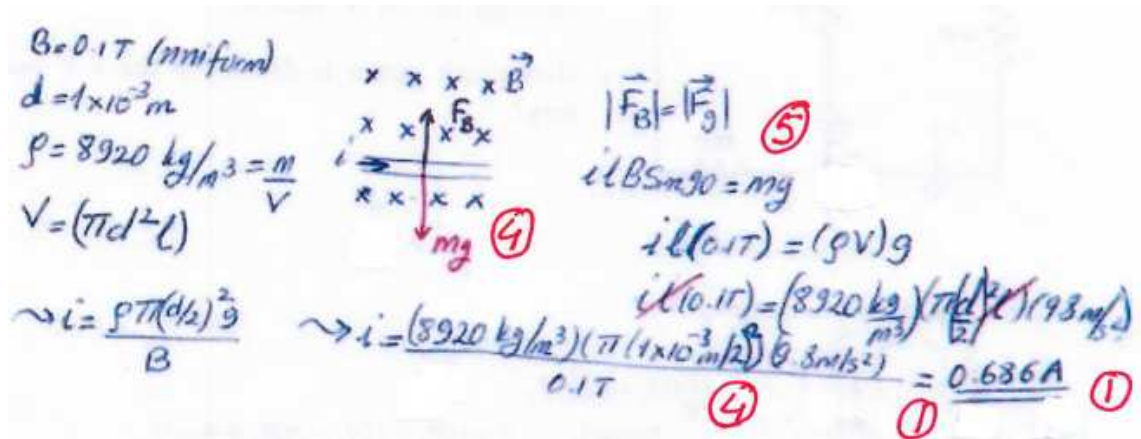 B=0.1T (uniform)
d=1×10⁻³m
ρ=8920 kg/m³=m/V
V=(πd²l)
x x x x B⃗
F_B
x x x x
i
x x x x
mg ④
|F⃗_B|=|F⃗_g| ⑤
ilBSin90=mg
il(0.1T)=(ρV)g
il(0.1T)=(8920 kg/m³)(π(d/2)²l)(9.8m/s²)
⇝i=ρπ(d/2)²g/B
⇝i=(8920 kg/m³)(π(1×10⁻³m/2)²)(9.8m/s²)/0.1T = 0.686A
④ ① ①